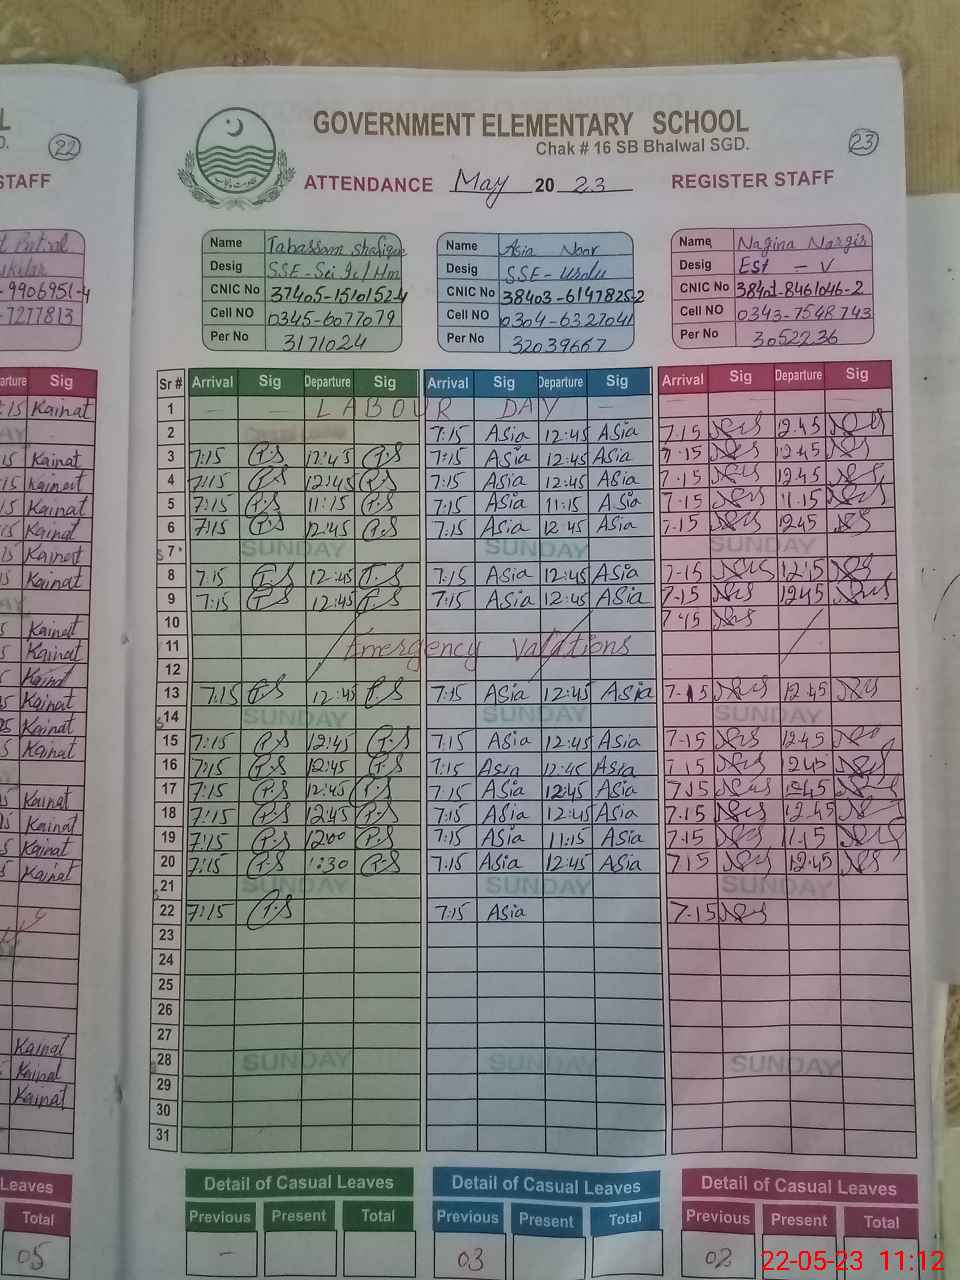 GOVERNMENT ELEMENTARY SCHOOL
Chak # 16 SB Bhalwal SGD.
22
23
STAFF
ATTENDANCE May 2023 REGISTER STAFF
Name Tabassam Shafique Name Asia Noor Name Nagina Nargis
Desig SSE-Sci Ic/Hm Desig SSE-Urdu Desig EST - V
-9906951-4 CNIC No 37405-1510152-4 CNIC No 38403-6147825-2 CNIC No 38401-8461046-2
-7277813 Cell NO 0345-6077079 Cell NO 0304-6327041 Cell NO 0343-7548743
Per No 3171024 Per No 32039667 Per No 3052236
Sig Sr # Arrival Sig Departure Sig Arrival Sig Departure Sig Arrival Sig Departure Sig
:15 Kainat 1 LABOUR DAY
2 7:15 Asia 12:45 Asia 7-15 12.45
Kainat 3 7:15 T.S 12:45 T.S 7:15 Asia 12:45 Asia 7-15 12.45
Kainat 4 7:15 T.S 12:45 T.S 7:15 Asia 12:45 Asia 7-15 12.45
Kainat 5 7:15 T.S 11:15 T.S 7:15 Asia 11:15 Asia 7-15 11-15
Kainat 6 7:15 T.S 12:45 T.S 7:15 Asia 12:45 Asia 7-15 1245
Kainat S 7 SUNDAY SUNDAY SUNDAY
Kainat 8 7:15 T.S 12:45 T.S 7:15 Asia 12:45 Asia 7-15
9 7:15 T.S 12:45 T.S 7:15 Asia 12:45 Asia 7-15 1245
Kainat 10
Kainat 11 Emergency Vacations
Kainat 12
Kainat 13 7:15 T.S 12:45 T.S 7:15 Asia 12:45 Asia 7-15 12.45
Kainat S 14 SUNDAY SUNDAY SUNDAY
Kainat 15 7:15 T.S 12:45 T.S 7:15 Asia 12:45 Asia 7-15 12.45
16 7:15 T.S 12:45 T.S 7:15 Asia 12:45 Asia 7-15
Kainat 17 7:15 T.S 12:45 T.S 7:15 Asia 12:45 Asia 7-15
Kainat 18 7:15 T.S 12:45 T.S 7:15 Asia 12:45 Asia 7-15 12.45
Kainat 19 7:15 T.S 1200 T.S 7:15 Asia 11:15 Asia 7-15 11-15
Kainat 20 7:15 T.S 1:30 T.S 7:15 Asia 12:45 Asia 7-15 12.45
21 SUNDAY SUNDAY SUNDAY
22 7:15 T.S 7:15 Asia 7-15
23
24
25
26
Kainat 27
Kainat 28 SUNDAY SUNDAY SUNDAY
Kainat 29
30
31
Leaves Detail of Casual Leaves Detail of Casual Leaves Detail of Casual Leaves
Total Previous Present Total Previous Present Total Previous Present Total
05 - 03 02
22-05-23 11:12